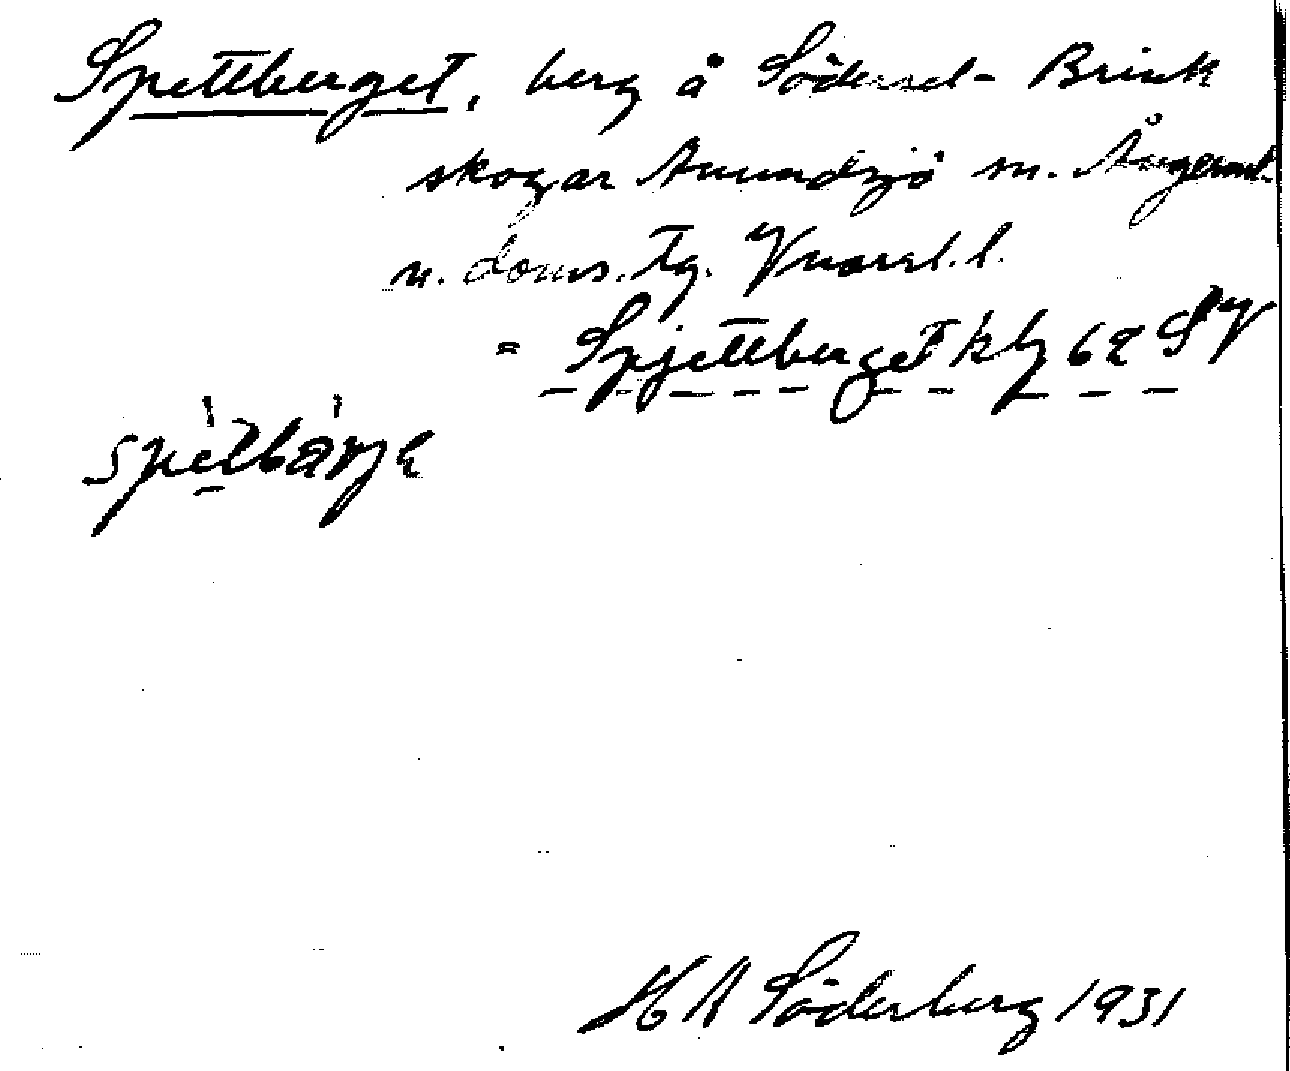 Spettberget, berg å Södersel- Brink
skogar Anundsjö sn. Ångerml.
n. doms. tg. Vnorrl. l.
= Spjettberget kbl 62 SV
spètbàrje
H A Söderberg 1931